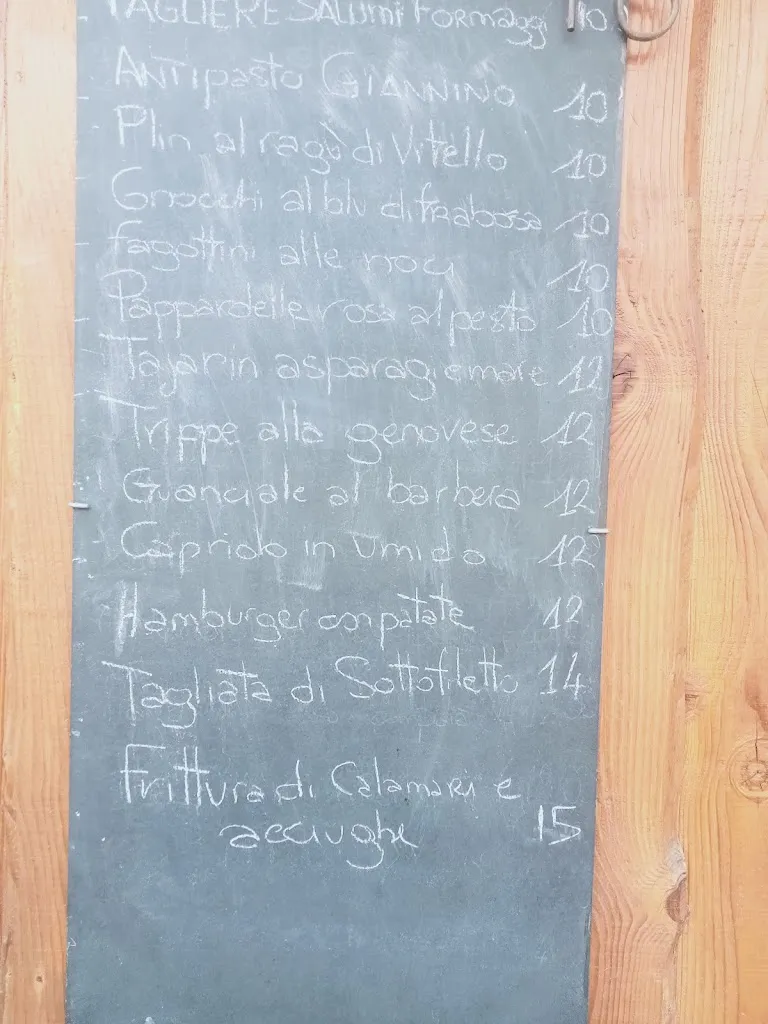 TAGLIERE SALUMI FORMAggi 10
ANTIpasto GIANNINO 10
Plin al ragù di Vitello 10
Gnocchi al blu di frabosa 10
fagottini alle noci 10
Pappardelle rosa al pesto 10
Tajarin asparagi e mare 12
Trippe alla genovese 12
Guanciale al barbera 12
Capriolo in umido 12
Hamburger con patate 12
Tagliata di Sottofiletto 14
Frittura di Calamari e
acciughe 15